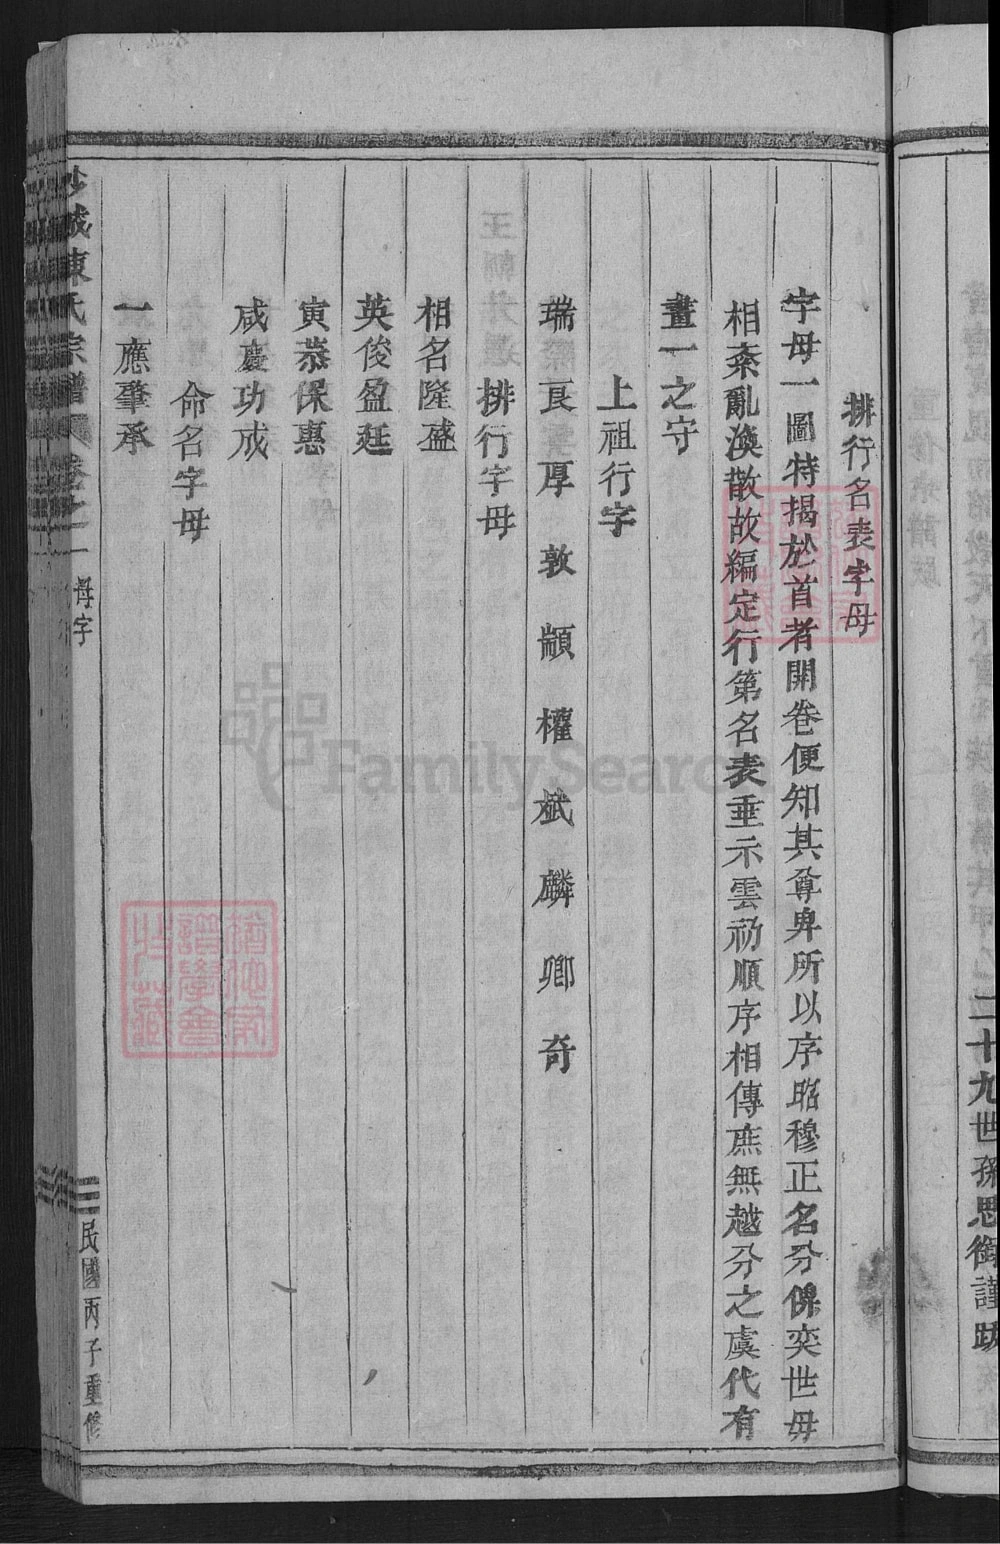 二十九世孫思衡謹跋
排行名表字母
字母一圖特揭於首者開卷便知其尊卑所以序昭穆正名分俾奕世毋
相紊亂渙散故編定行第名表垂示雲礽順序相傳庶無越分之虞代有
畫一之守
上祖行字
瑞良厚敦顓權斌麟卿奇
排行字母
相名隆盛
英俊盈廷
寅恭保惠
咸慶功成
命名字母
一應肇承
陳氏宗譜 卷之一 字母
民國丙子重修
FamilySearch